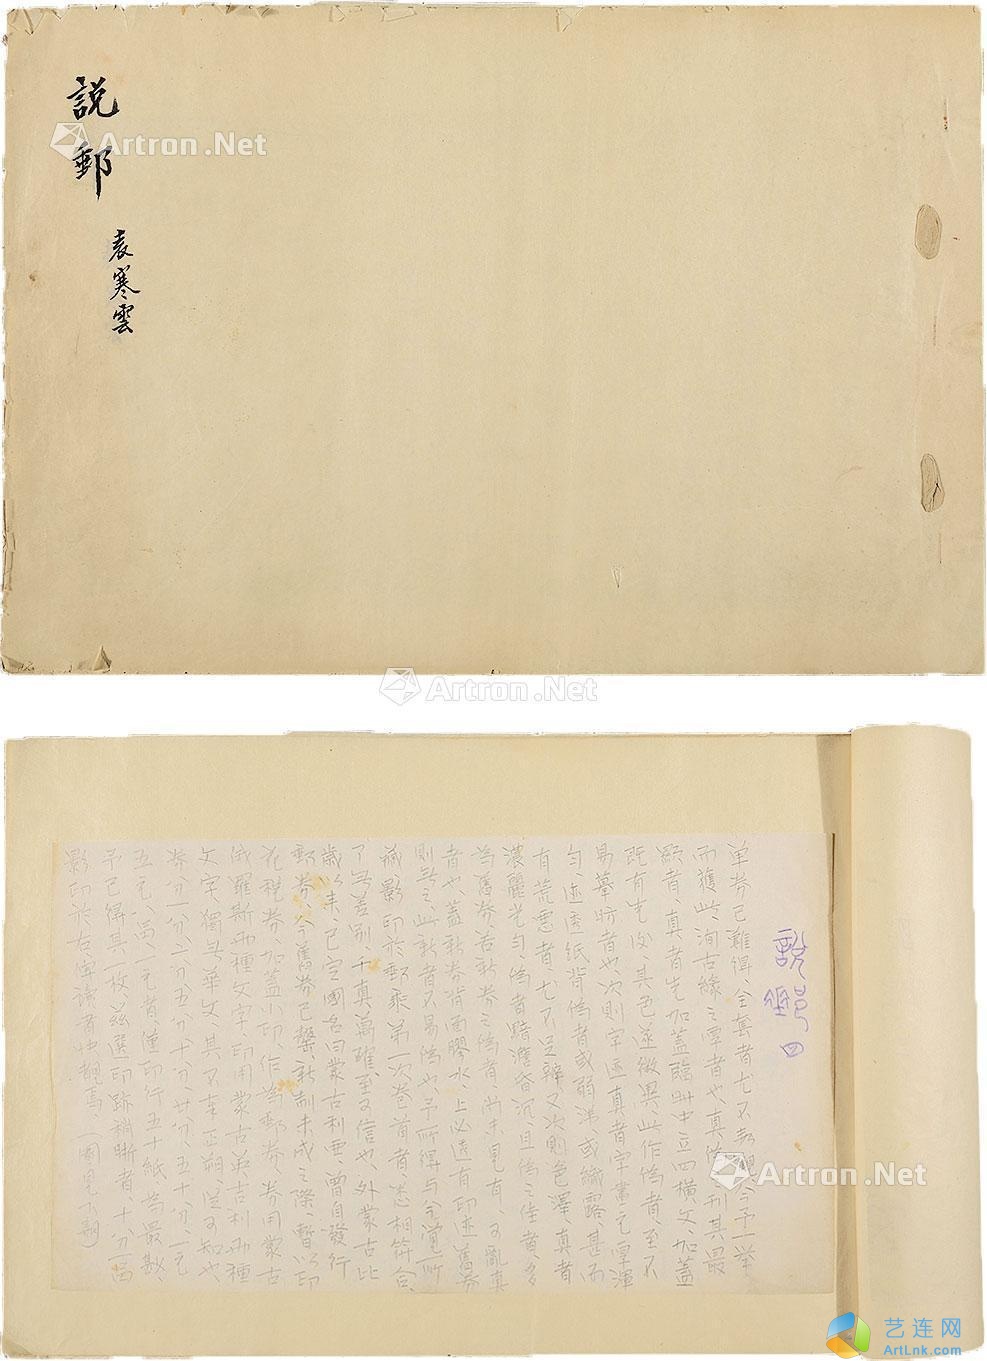 說郵
袁寒雲
Artron.Net
Artron.Net
說郵 四
單券已難得、全套者尤不易覯、今予一舉
而獲此、洵古緣之厚者也、真偽之判其最
顯者、真者先加蓋臨時中立四橫文、加蓋
既有先後、其色遂微異、此作偽者、至不
易摹昉者也、次則字迹真者字畫尤厚渾
勻、迹透紙背偽者或弱滯或纖露、甚而
有荒悪者、尤不足辨、又次則色澤、真者
濃麗光勻偽者黯澹昏沉、且偽之佳者多
為舊券、若新券之偽者、尚未見有、可亂真
者也、蓋新券背面膠水、上必透有印迹舊券
則無之、此新者不易偽也、予所得與今覺所
藏、影印於郵乘第一次卷首者悉相符合、
了無差別、千真萬確、至可信也、外蒙古比
歲以來、已定國名曰蒙古利亜、曾自發行
郵券、今舊券已罄、新制未成之際、暫以印
花稅券、加蓋小印、作為郵券、券用蒙古
俄羅斯兩種文字、印用蒙古英吉利兩種
文字、獨無華文、其不奉正朔、従可知也、
券分一分、二分、五分、十分、廿分、五十分、一元
五元、八品、一元者僅印行五十紙、為最尟、
予已得其一枚、茲選印跡稍晰者、十分一品
影印於右俾讀者快覩焉
Artron.Net
艺连网
ArtLnk.com